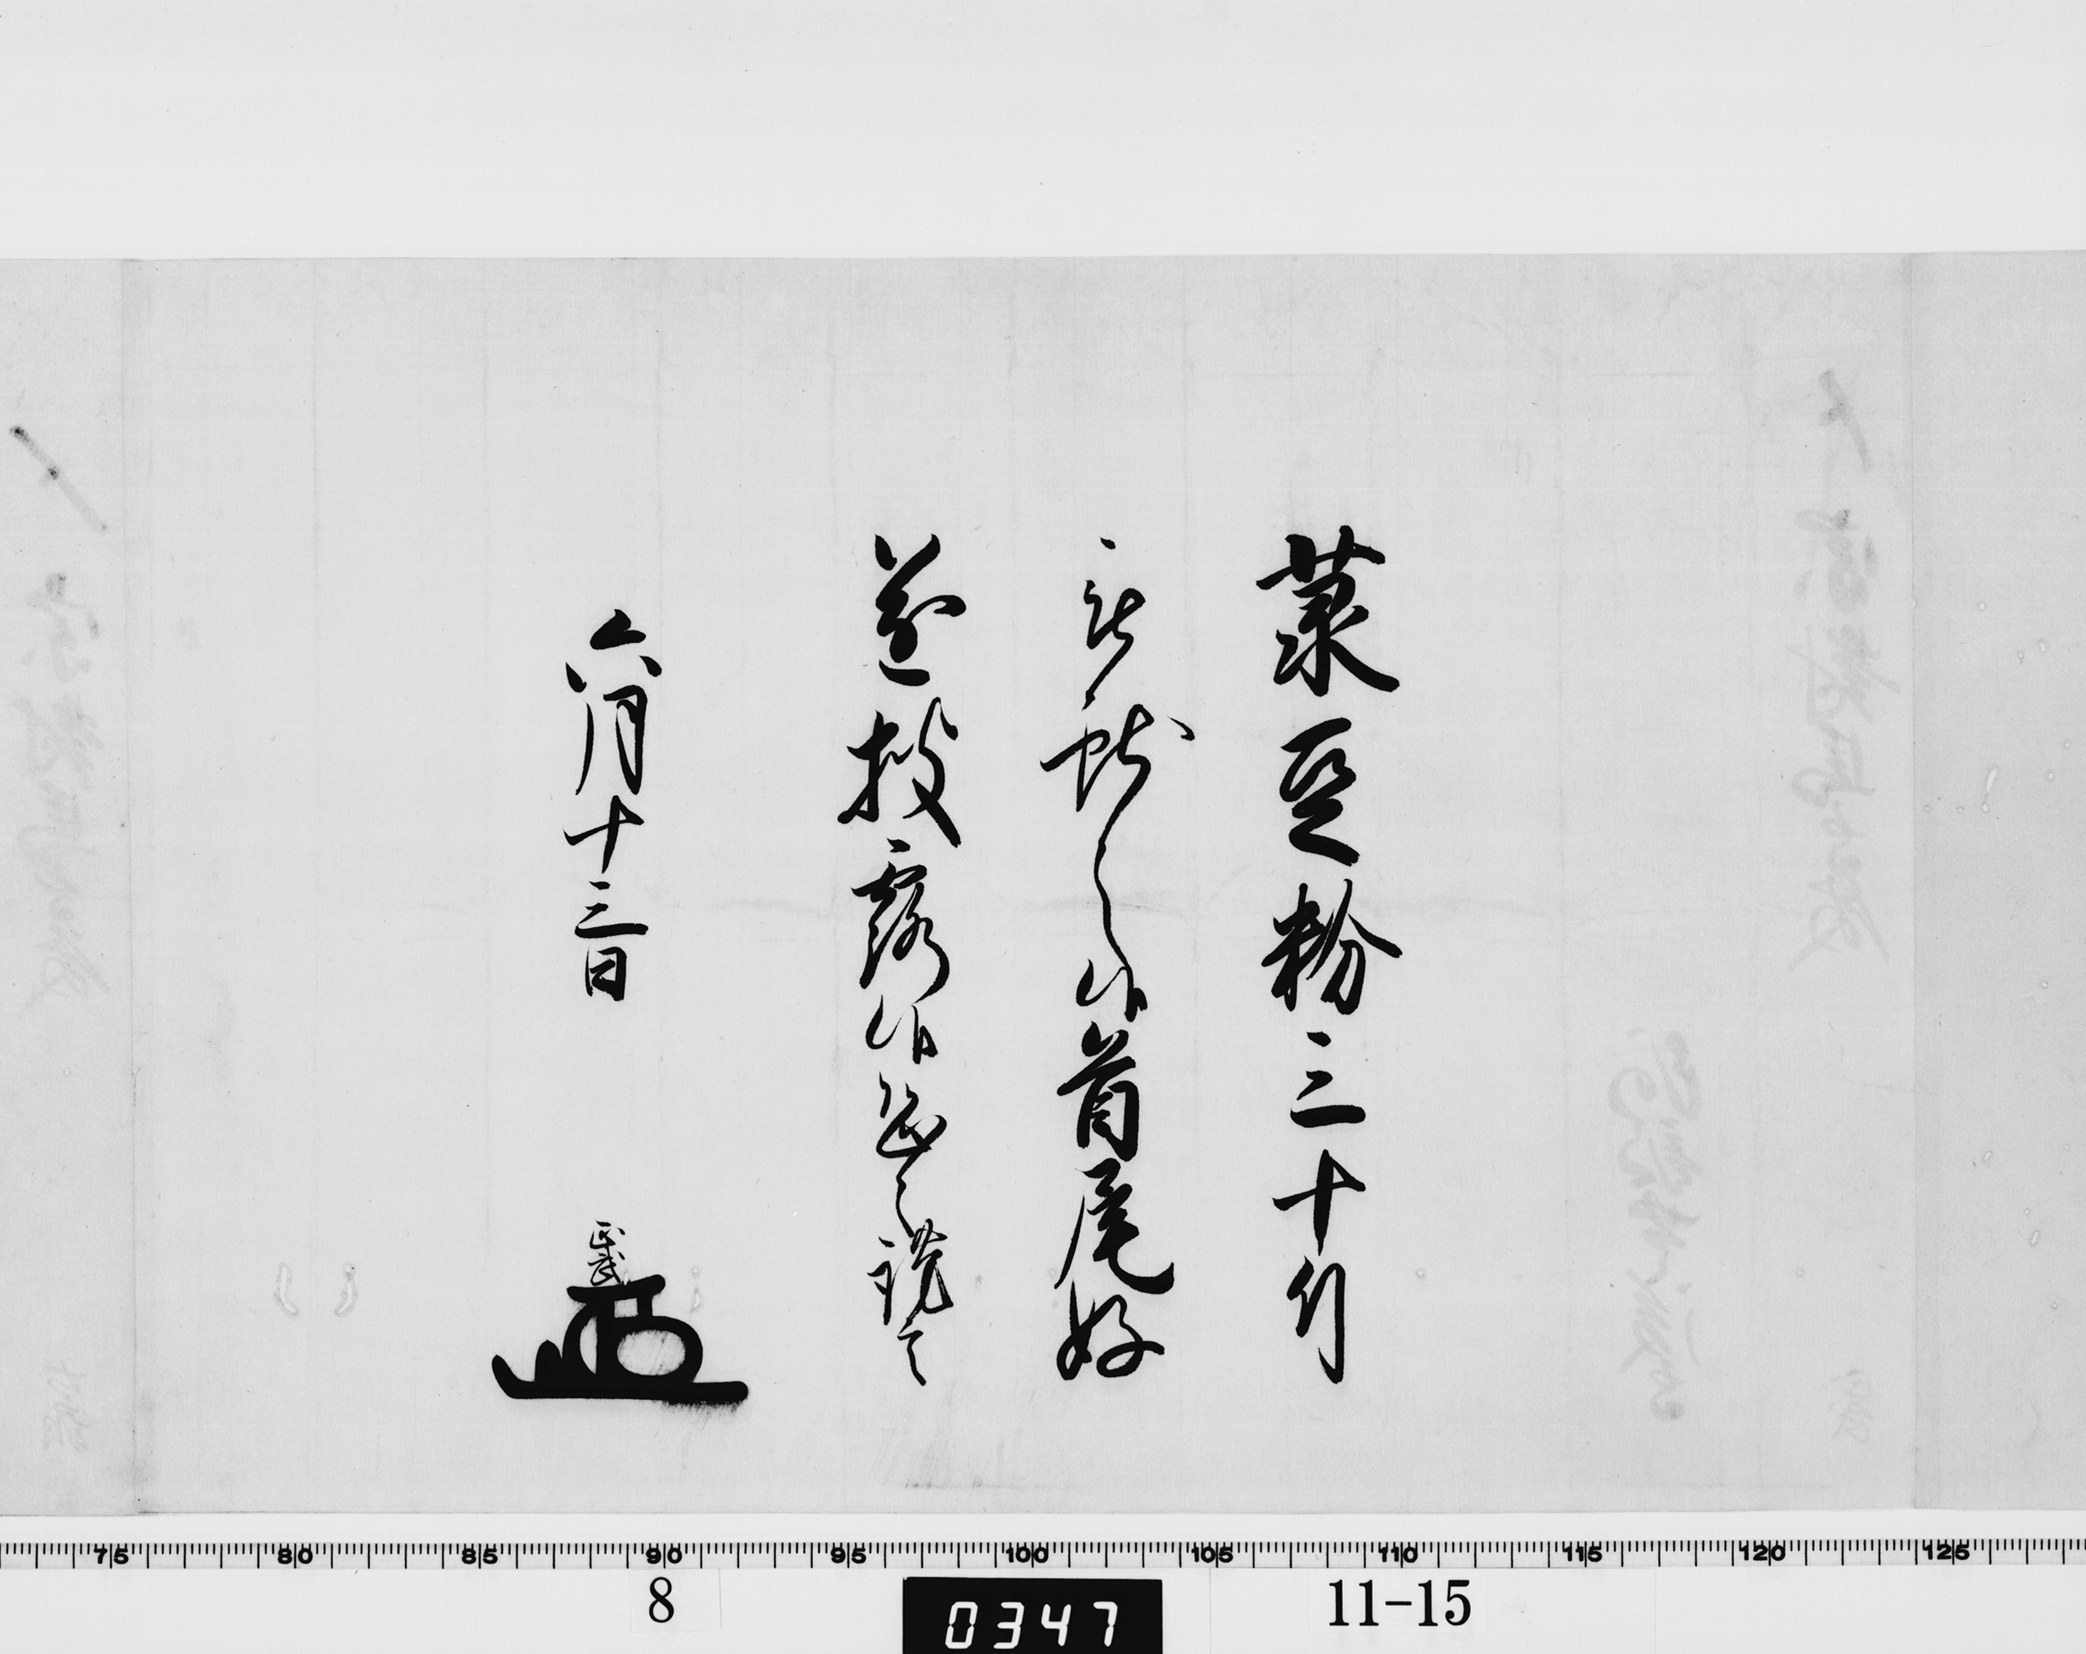 菉豆粉三十斤
被献之候首尾好
遂披露候恐々謹言
六月十三日
正武
75 80 85 90 95 100 105 110 115 120 125
8 0347 11-15